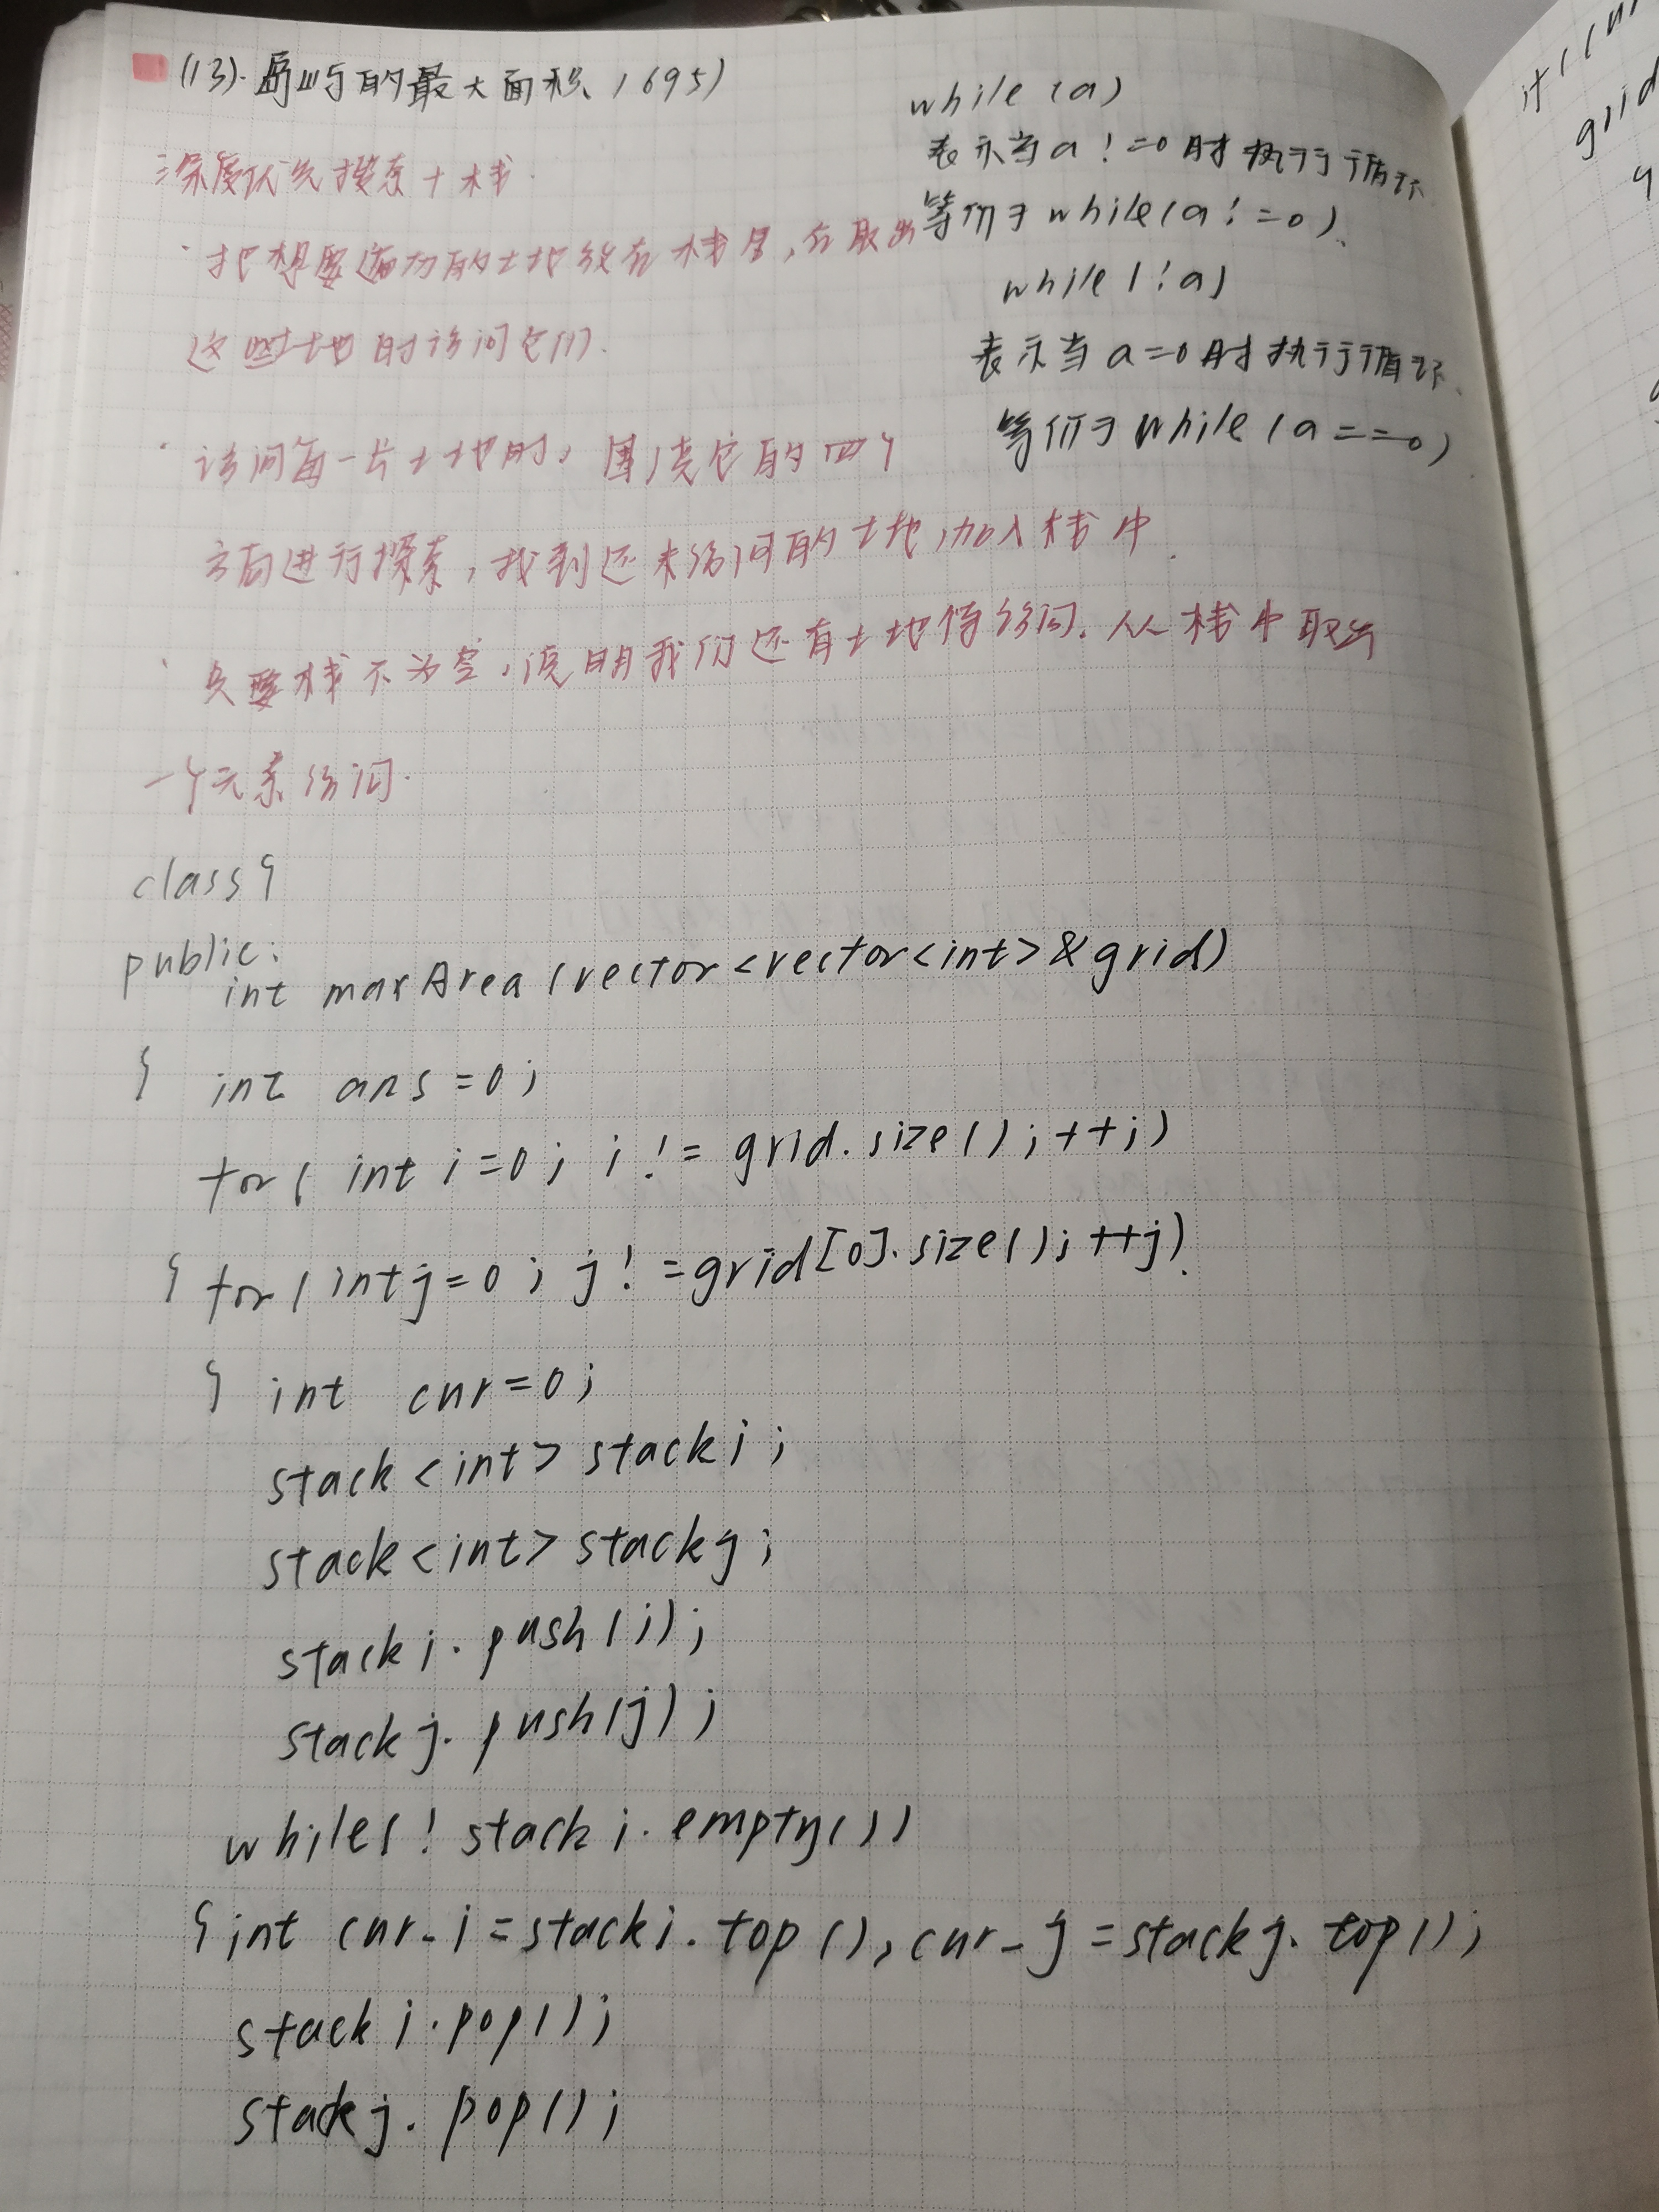 (13).岛屿的最大面积(695)
深度优先搜索+栈.
·把想要遍历的土地放在栈里,在取出
这些土地时访问它们.
·访问每一片土地时,围绕它的四个
方向进行探索,找到还未访问的土地,加入栈中.
·只要栈不为空,说明我们还有土地待访问.从栈中取出
一个元素访问.
while(a)
表示当a!=0时执行循环
等价于while(a!=0).
while(!a)
表示当a=0时执行循环.
等价于while(a==0)
class{
public:
int maxArea(vector<vector<int>&grid)
{ int ans=0;
for( int i=0; i!= grid.size();++i)
{ for(int j=0; j!=grid[0].size();++j).
{ int cur=0;
stack<int> stacki;
stack<int> stackj;
stacki.push(i);
stackj.push(j);
while(!stacki.empty())
{int cur_i=stacki.top(),cur_j=stackj.top();
stacki.pop();
stackj.pop();
grid